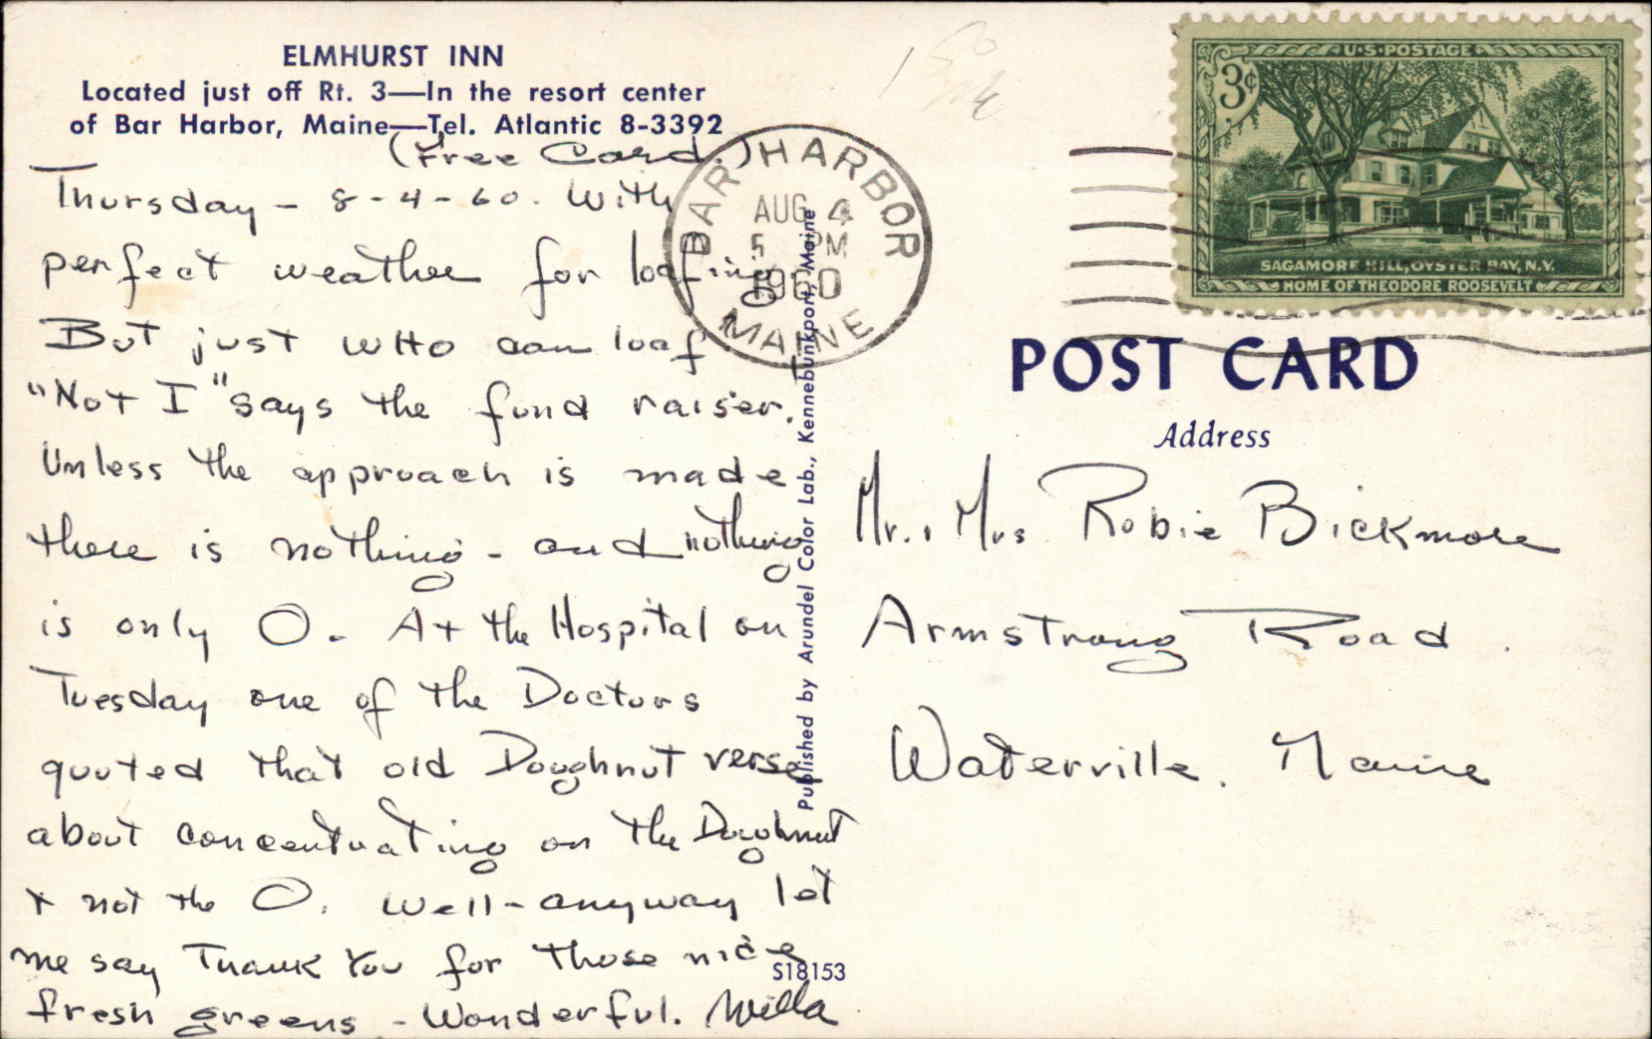 ELMHURST INN
Located just off Rt. 3—In the resort center
of Bar Harbor, Maine—Tel. Atlantic 8-3392
(Free Card.)
Thursday - 8-4-60. With
perfect weather for loafing
But just WHO can loaf.
"Not I" says the fund raiser.
Unless the approach is made
there is nothing - and nothing
is only O. At the Hospital on
Tuesday one of the Doctors
quoted that old Doughnut verse
about concentrating on the Doughnut
+ not the O. Well - anyway let
me say Thank You for those nice
fresh greens - Wonderful. Willa
S18153
Published by Arundel Color Lab., Kennebunkport, Maine
BAR HARBOR
AUG 4
5 PM
1960
MAINE
U·S·POSTAGE
3¢
SAGAMORE HILL, OYSTER BAY, N.Y.
HOME OF THEODORE ROOSEVELT
POST CARD
Address
Mr. + Mrs Robie Bickmore
Armstrong Road.
Waterville, Maine